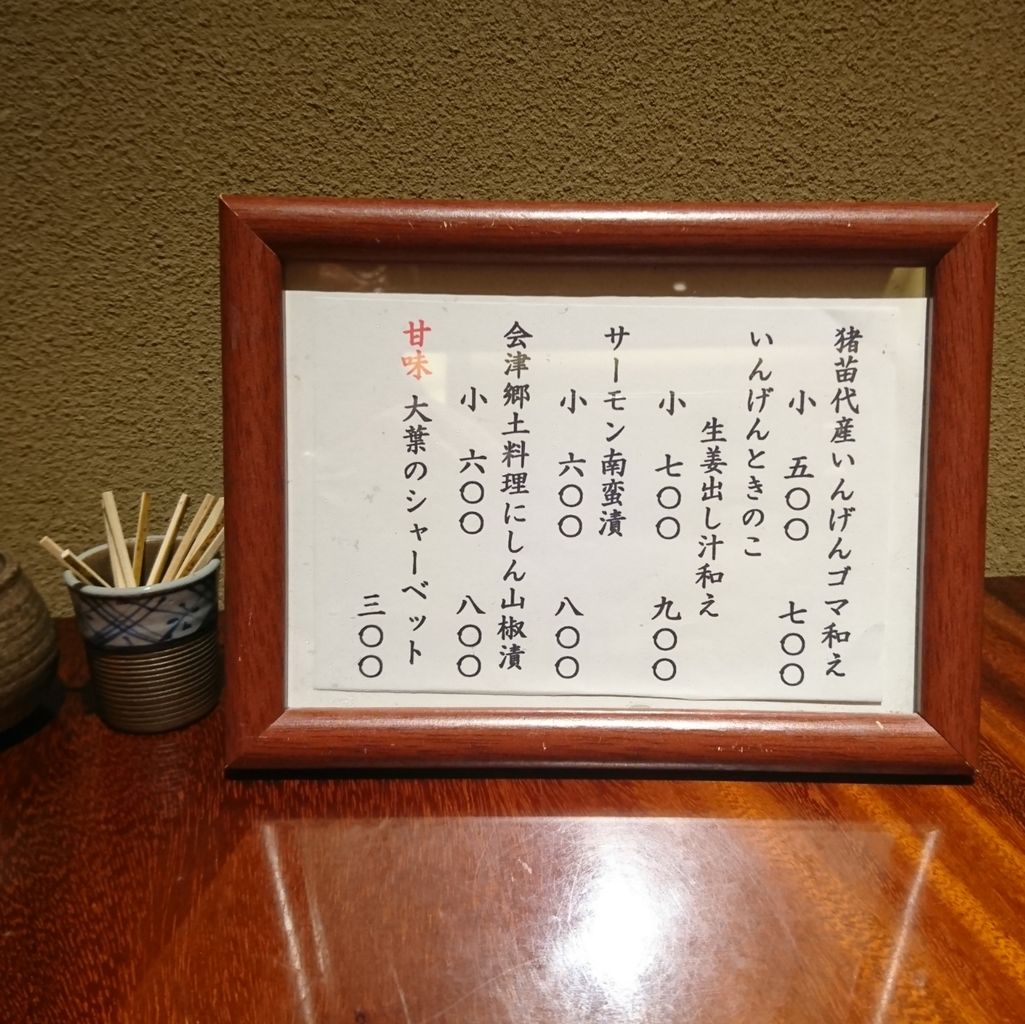 猪苗代産いんげんゴマ和え
小 五〇〇 七〇〇
いんげんときのこ
生姜出し汁和え
小 七〇〇 九〇〇
サーモン南蛮漬
小 六〇〇 八〇〇
会津郷土料理にしん山椒漬
小 六〇〇 八〇〇
甘味 大葉のシャーベット
三〇〇